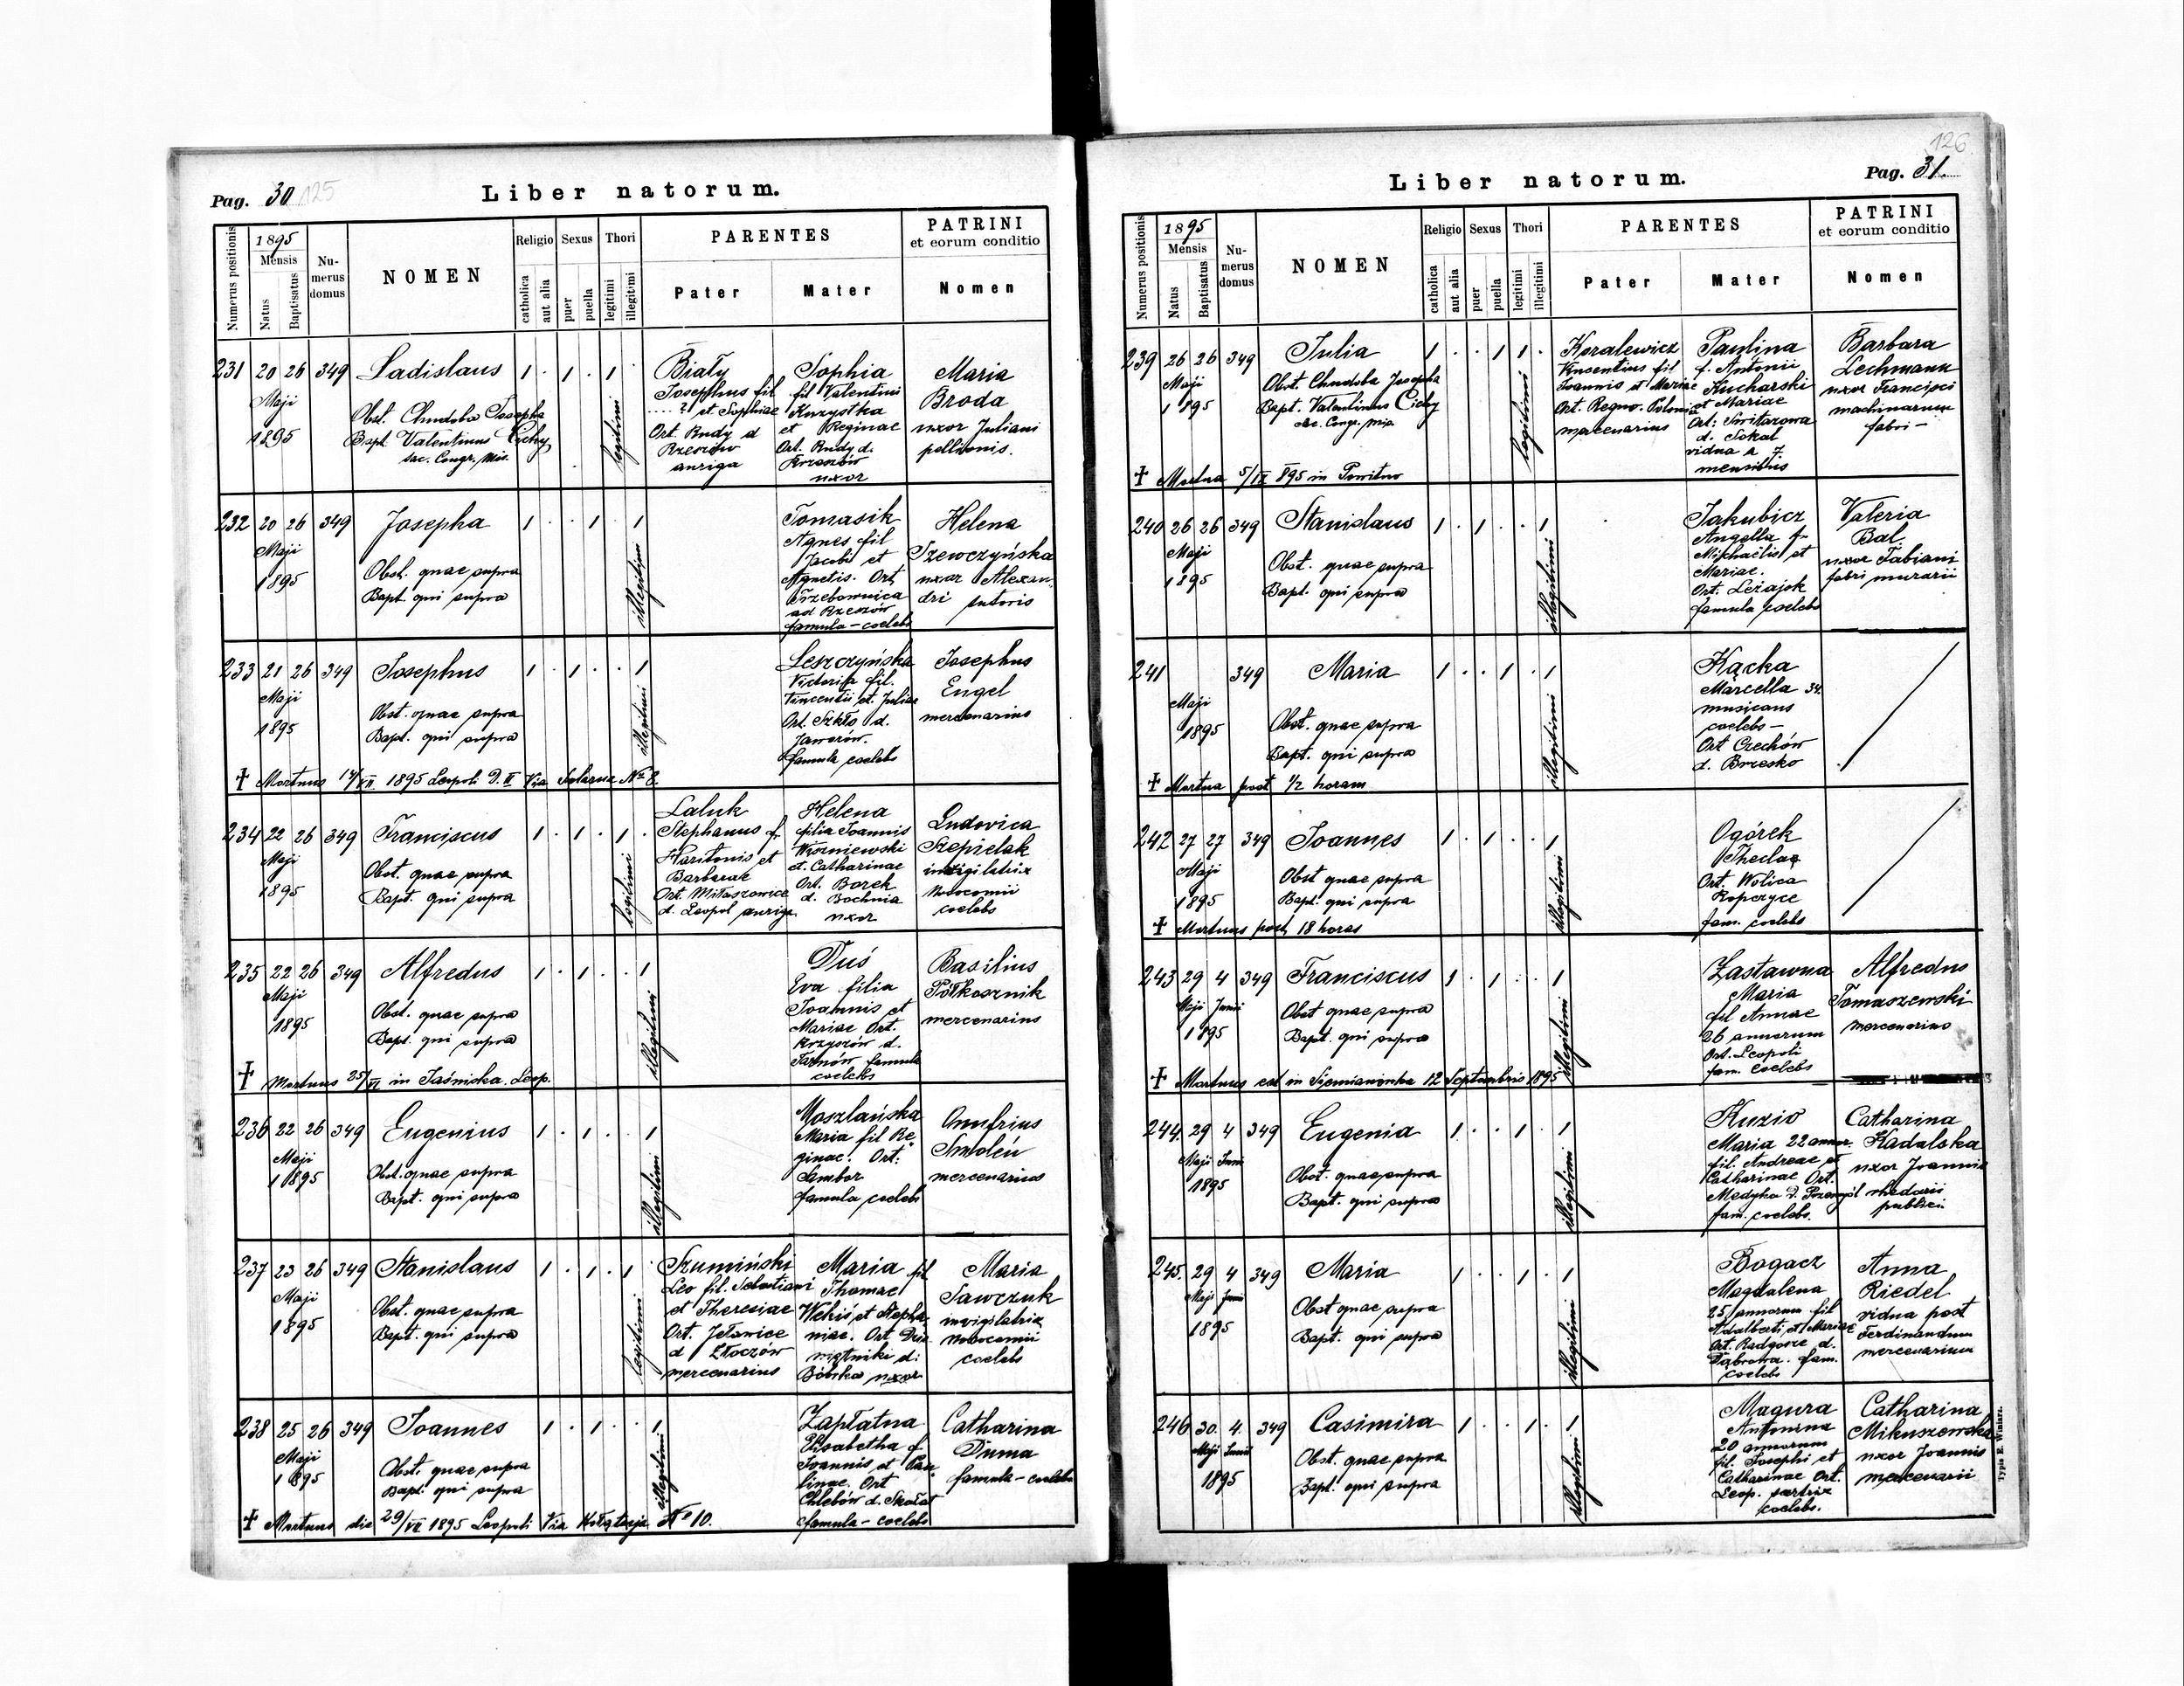 Pag. 30 125
Liber natorum.
Numerus positionis
1895
Mensis
Natus
Baptisatus
Nu-
merus
domus
NOMEN
Religio
catholica
aut alia
Sexus
puer
puella
Thori
legitimi
illegitimi
PARENTES
Pater
Mater
PATRINI
et eorum conditio
Nomen
231 20 26 349 Ladislaus 1 . 1 . 1 .
Maji
1895
Obst. Chudoba Josepha
Bapt. Valentinus Cichy
sac. Congr. Mis.
legitimi
Biały
Josephus fil
....? et Sophiae
Ort. Rudy d
Rzeszów
auriga
Sophia
fil Valentini
Krzystka
et Reginae
Ort. Rudy d.
Rzeszów
uxor
Maria
Broda
uxor Juliani
pellionis.
232 20 26 349 Josepha 1 . . 1 . 1
Maji
1895
Obst. quae supra
Bapt. qui supra
illegitimi
Tomasik
Agnes fil
Jacobi et
Agnetis. Ort
Trzebownica
ad Rzeszów
famula - coelebs
Helena
Szewczyńska
uxor Alexan-
dri sutoris
233 21 26 349 Josephus 1 . 1 . . 1
Maji
1895
Obst. quae supra
Bapt. qui supra
illegitimi
Leszczyńska
Victoria fil.
Vincentii et Juliae
Ort. Szkło d.
Jaworów.
famula coelebs
Josephus
Engel
mercenarius
+ Mortuus 14/VII 1895 Leopoli D. II Via Solarna No 8.
234 22 26 349 Franciscus 1 . 1 . 1 .
Maji
1895
Obst. quae supra
Bapt. qui supra
legitimi
Laluk
Stephanus f.
Haritonis et
Barbarae
Ort. Miłaszowice
d. Leopol auriga
Helena
filia Joannis
Wiszniewski
et. Catharinae
Ort. Borek
d. Bochnia
uxor
Ludovica
Szepielak
invigilatrix
Nosocomii
coelebs
235 22 26 349 Alfredus 1 . 1 . . 1
Maji
1895
Obst. quae supra
Bapt. qui supra
illegitimi
Duś
Eva filia
Joannis et
Mariae Ort.
Krzyszów d.
Tarnów famula
coelebs
Basilius
Półkosznik
mercenarius
+ Mortuus 25/VI in Jaśniska. Leop.
236 22 26 349 Eugenius 1 . 1 . . 1
Maji
1895
Obst. quae supra
Bapt. qui supra
illegitimi
Moszlańska
Maria fil Re-
ginae. Ort:
Sambor
famula coelebs
Onufrius
Smoleń
mercenarius
237 23 26 349 Stanislaus 1 . 1 . 1 .
Maji
1895
Obst. quae supra
Bapt. qui supra
legitimi
Szumiński
Leo fil. Sebastiani
et Theresiae
Ort. Jełowice
d Złoczów
mercenarius
Maria fil
Thomae
et Stepha-
niae. Ort
d:
Bóbrka uxor
Maria
Sawczuk
invigilatrix
Nosocomii
coelebs
238 25 26 349 Joannes 1 . 1 . . 1
Maji
1895
Obst. quae supra
Bapt. qui supra
illegitimi
Zapłatna
Elisabetha f.
Joannis et Pau-
linae. Ort
Chlebów d. Skałat
famula - coelebs
Catharina
Duma
famula - coelebs
+ Mortuus die 29/VI 1895 Leopoli Via Kołątaja No 10.
126
Pag. 31
Liber natorum.
Numerus positionis
1895
Mensis
Natus
Baptisatus
Nu-
merus
domus
NOMEN
Religio
catholica
aut alia
Sexus
puer
puella
Thori
legitimi
illegitimi
PARENTES
Pater
Mater
PATRINI
et eorum conditio
Nomen
239 26 26 349 Julia 1 . . 1 1 .
Maji
1895
Obst. Chudoba Josepha
Bapt. Valentinus Cichy
sac. Congr. Mis.
legitimi
Koralewicz
Vincentius fil
Joannis et Mariae
Ort. Regno. Poloniae
mercenarius
Paulina
f. Antonii
Kucharski
et Mariae
Ort: Switarowa
d. Sokal
vidua a 7
mensibus
Barbara
Lechmann
uxor Francisci
machinarum
fabri -
+ Mortua 5/IX 895 in Powitno
240 26 26 349 Stanislaus 1 . 1 . . 1
Maji
1895
Obst. quae supra
Bapt. qui supra
illegitimi
Jakubicz
Angella f.
Michaëlis et
Mariae.
Ort: Leżajsk
famula coelebs
Valeria
Bal
uxor Fabiani
fabri murarii
241 349 Maria 1 . . 1 . 1
Maji
1895
Obst. quae supra
Bapt. qui supra
illegitimi
Kącka
Marcella 34
musicans
coelebs -
Ort Czechów
d. Brzesko
+ Mortua post 1/2 horam
242 27 27 349 Joannes 1 . 1 . . 1
Maji
1895
Obst quae supra
Bapt. qui supra
illegitimi
Ogórek
Theclae
Ort. Wolica
Ropczyce
fam. coelebs
+ Mortuus post 18 horas
243 29 4 349 Franciscus 1 . 1 . . 1
Maji Junii
1895
Obst quae supra
Bapt. qui supra
illegitimi
Zastawna
Maria
fil Annae
26 annorum
Ort. Leopoli
fam. coelebs
Alfredus
Tomaszewski
mercenarius
+ Mortuus est in Siemianówka 12 Septembris 1895
244. 29 4 349 Eugenia 1 . . 1 . 1
Maji Junii
1895
Obst. quae supra
Bapt. qui supra
illegitimi
Kuzio
Maria 22 annor.
fil. Andreae et
Catharinae Ort.
Medyka d. Przemyśl
fam. coelebs.
Catharina
Kadalska
uxor Joannis
rhedarii
publici
245. 29 4 349 Maria 1 . . 1 . 1
Maji Junii
1895
Obst quae supra
Bapt. qui supra
illegitimi
Bogacz
Magdalena
25 annorum fil
Adalberti et Mariae
Ort. Radgoszcz d.
Dąbrowa. fam.
coelebs
Anna
Riedel
vidua post
Ferdinandum
mercenarium
246 30. 4. 349 Casimira 1 . . 1 . 1
Maji Junii
1895
Obst. quae supra
Bapt. qui supra
illegitimi
Magura
Antonina
20 annorum
fil. Josephi et
Catharinae Ort.
Leop. sartrix
coelebs.
Catharina
Mikuszewska
uxor Joannis
mercenarii
Typis E. Winiarz.